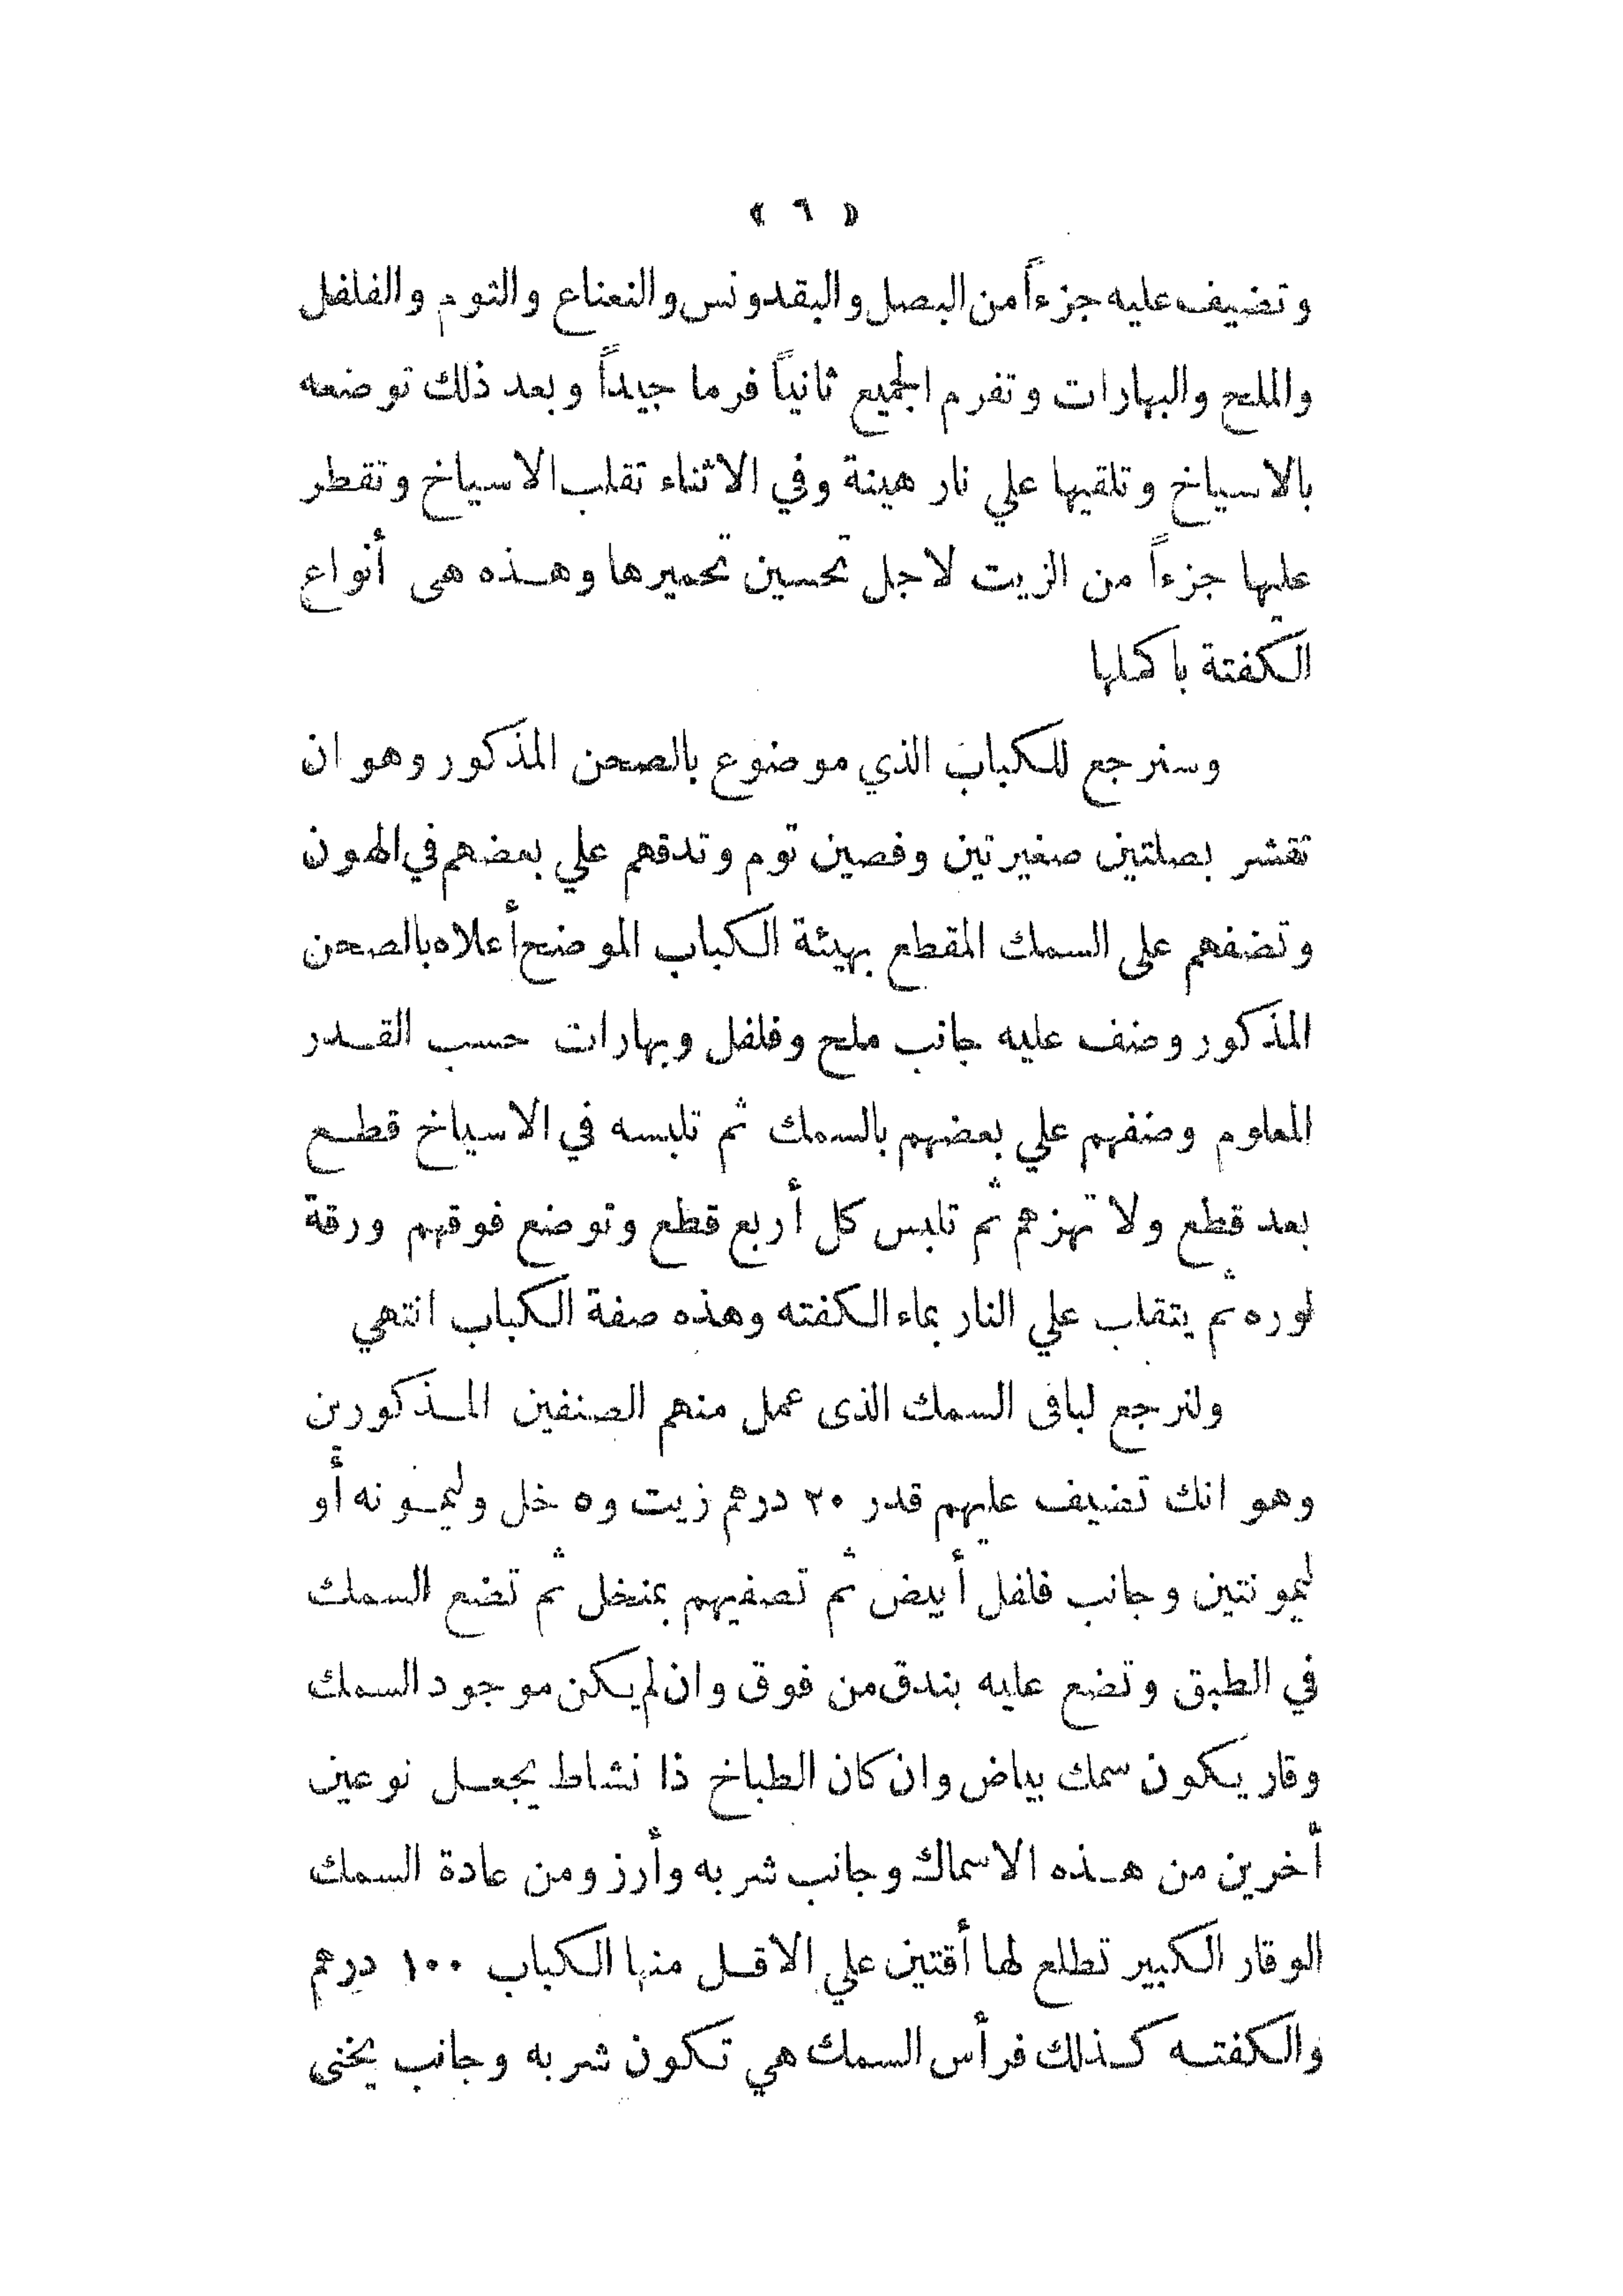 ﴿ ٦ ﴾
وتضيف عليه جزءاً من البصل والبقدونس والنعناع والثوم والفلفل
والملح والبهارات وتفرم الجميع ثانياً فرما جيداً وبعد ذلك توضعه
بالاسياخ وتلقيها علي نار هينة وفي الاثناء تقلب الاسياخ وتقطر
عليها جزءاً من الزيت لاجل تحسين تحميرها وهـذه هى أنواع
الكفتة باكملها
وسنرجع للكباب الذي موضوع بالصحن المذكور وهو ان
تقشر بصلتين صغيرتين وفصين توم وتدقهم علي بعضهم في الهون
وتضفهم على السمك المقطع بهيئة الكباب الموضح أعلاه بالصحن
المذكور وضف عليه جانب ملح وفلفل وبهارات حسب القـدر
المعلوم وضفهم علي بعضهم بالسمك ثم تلبسه في الاسياخ قطـع
بعد قطع ولا تهزهم ثم تلبس كل أربع قطع وتوضع فوقهم ورقة
لوره ثم يتقلب علي النار بماء الكفته وهذه صفة الكباب انتهي
ولنرجع لباقى السمك الذى عمل منهم الصنفين المـذكورين
وهو انك تضيف عليهم قدر ٣٠ درهم زيت و٥ خل وليمـونه أو
ليمونتين وجانب فلفل أبيض ثم تصفيهم بمنخل ثم تضع السمك
في الطبق وتضع عليه بندق من فوق وان لم يكن موجود السمك
وقار يـكون سمك بياض وان كان الطباخ ذا نشاط يجعـل نوعين
أخرين من هـذه الاسماك وجانب شربه وأرز ومن عادة السمك
الوقار الكبير تطلع لها أقتين علي الاقـل منها الكباب ١٠٠ درهم
والكفتـه كـذلك فرأس السمك هي تكون شربه وجانب يخنى